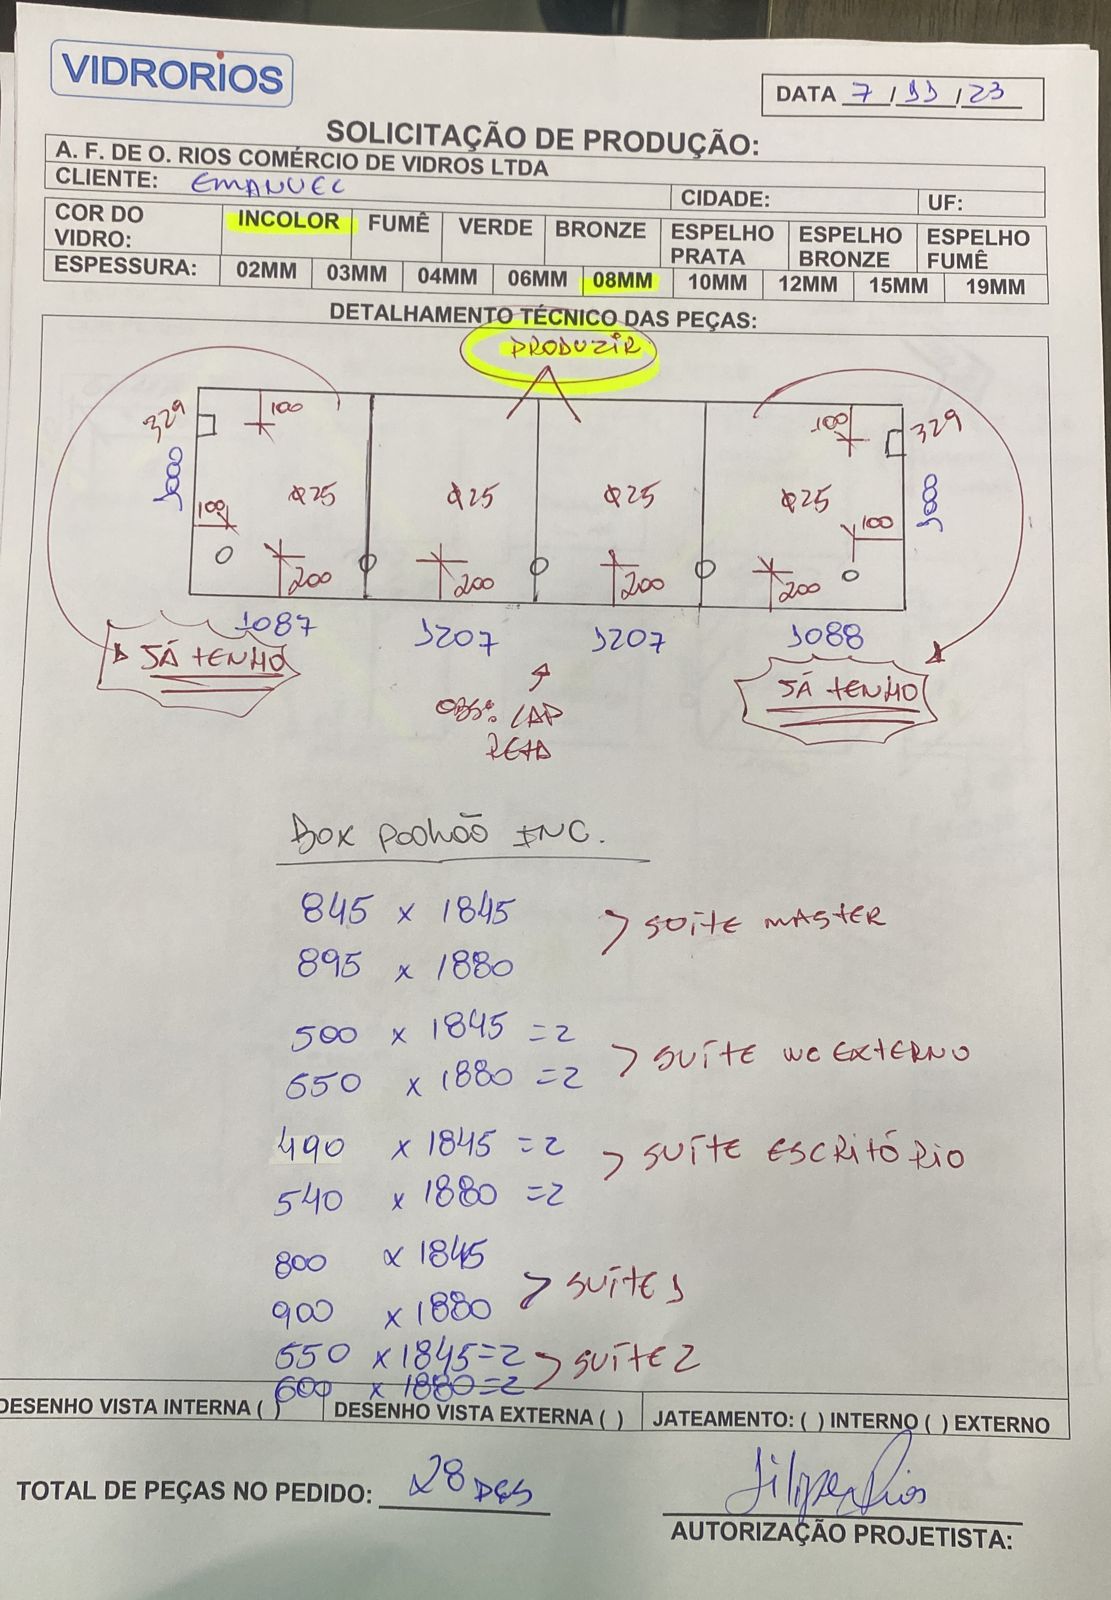 VIDRORIOS
DATA 7/11/23
SOLICITAÇÃO DE PRODUÇÃO:
A. F. DE O. RIOS COMÉRCIO DE VIDROS LTDA
CLIENTE: EMANUEL CIDADE: UF:
COR DO VIDRO: INCOLOR FUMÊ VERDE BRONZE ESPELHO PRATA ESPELHO BRONZE ESPELHO FUMÊ
ESPESSURA: 02MM 03MM 04MM 06MM 08MM 10MM 12MM 15MM 19MM
DETALHAMENTO TÉCNICO DAS PEÇAS:
PRODUZIR
329 100 100 329
1000 1000
100 Φ25 Φ25 Φ25 Φ25 100
200 200 200 200
1087 1207 1207 1088
JÁ TENHO JÁ TENHO
OBS: LAP
RETA
BOX PADRÃO INC.
845 x 1845 > SUÍTE MASTER
895 x 1880
500 x 1845 = 2 > SUÍTE WC EXTERNO
550 x 1880 = 2
490 x 1845 = 2 > SUÍTE ESCRITÓRIO
540 x 1880 = 2
800 x 1845
900 x 1880 > SUÍTE 1
550 x 1845 = 2 > SUÍTE 2
600 x 1880 = 2
DESENHO VISTA INTERNA ( ) DESENHO VISTA EXTERNA ( ) JATEAMENTO: ( ) INTERNO ( ) EXTERNO
TOTAL DE PEÇAS NO PEDIDO: 28 PÇS
AUTORIZAÇÃO PROJETISTA: